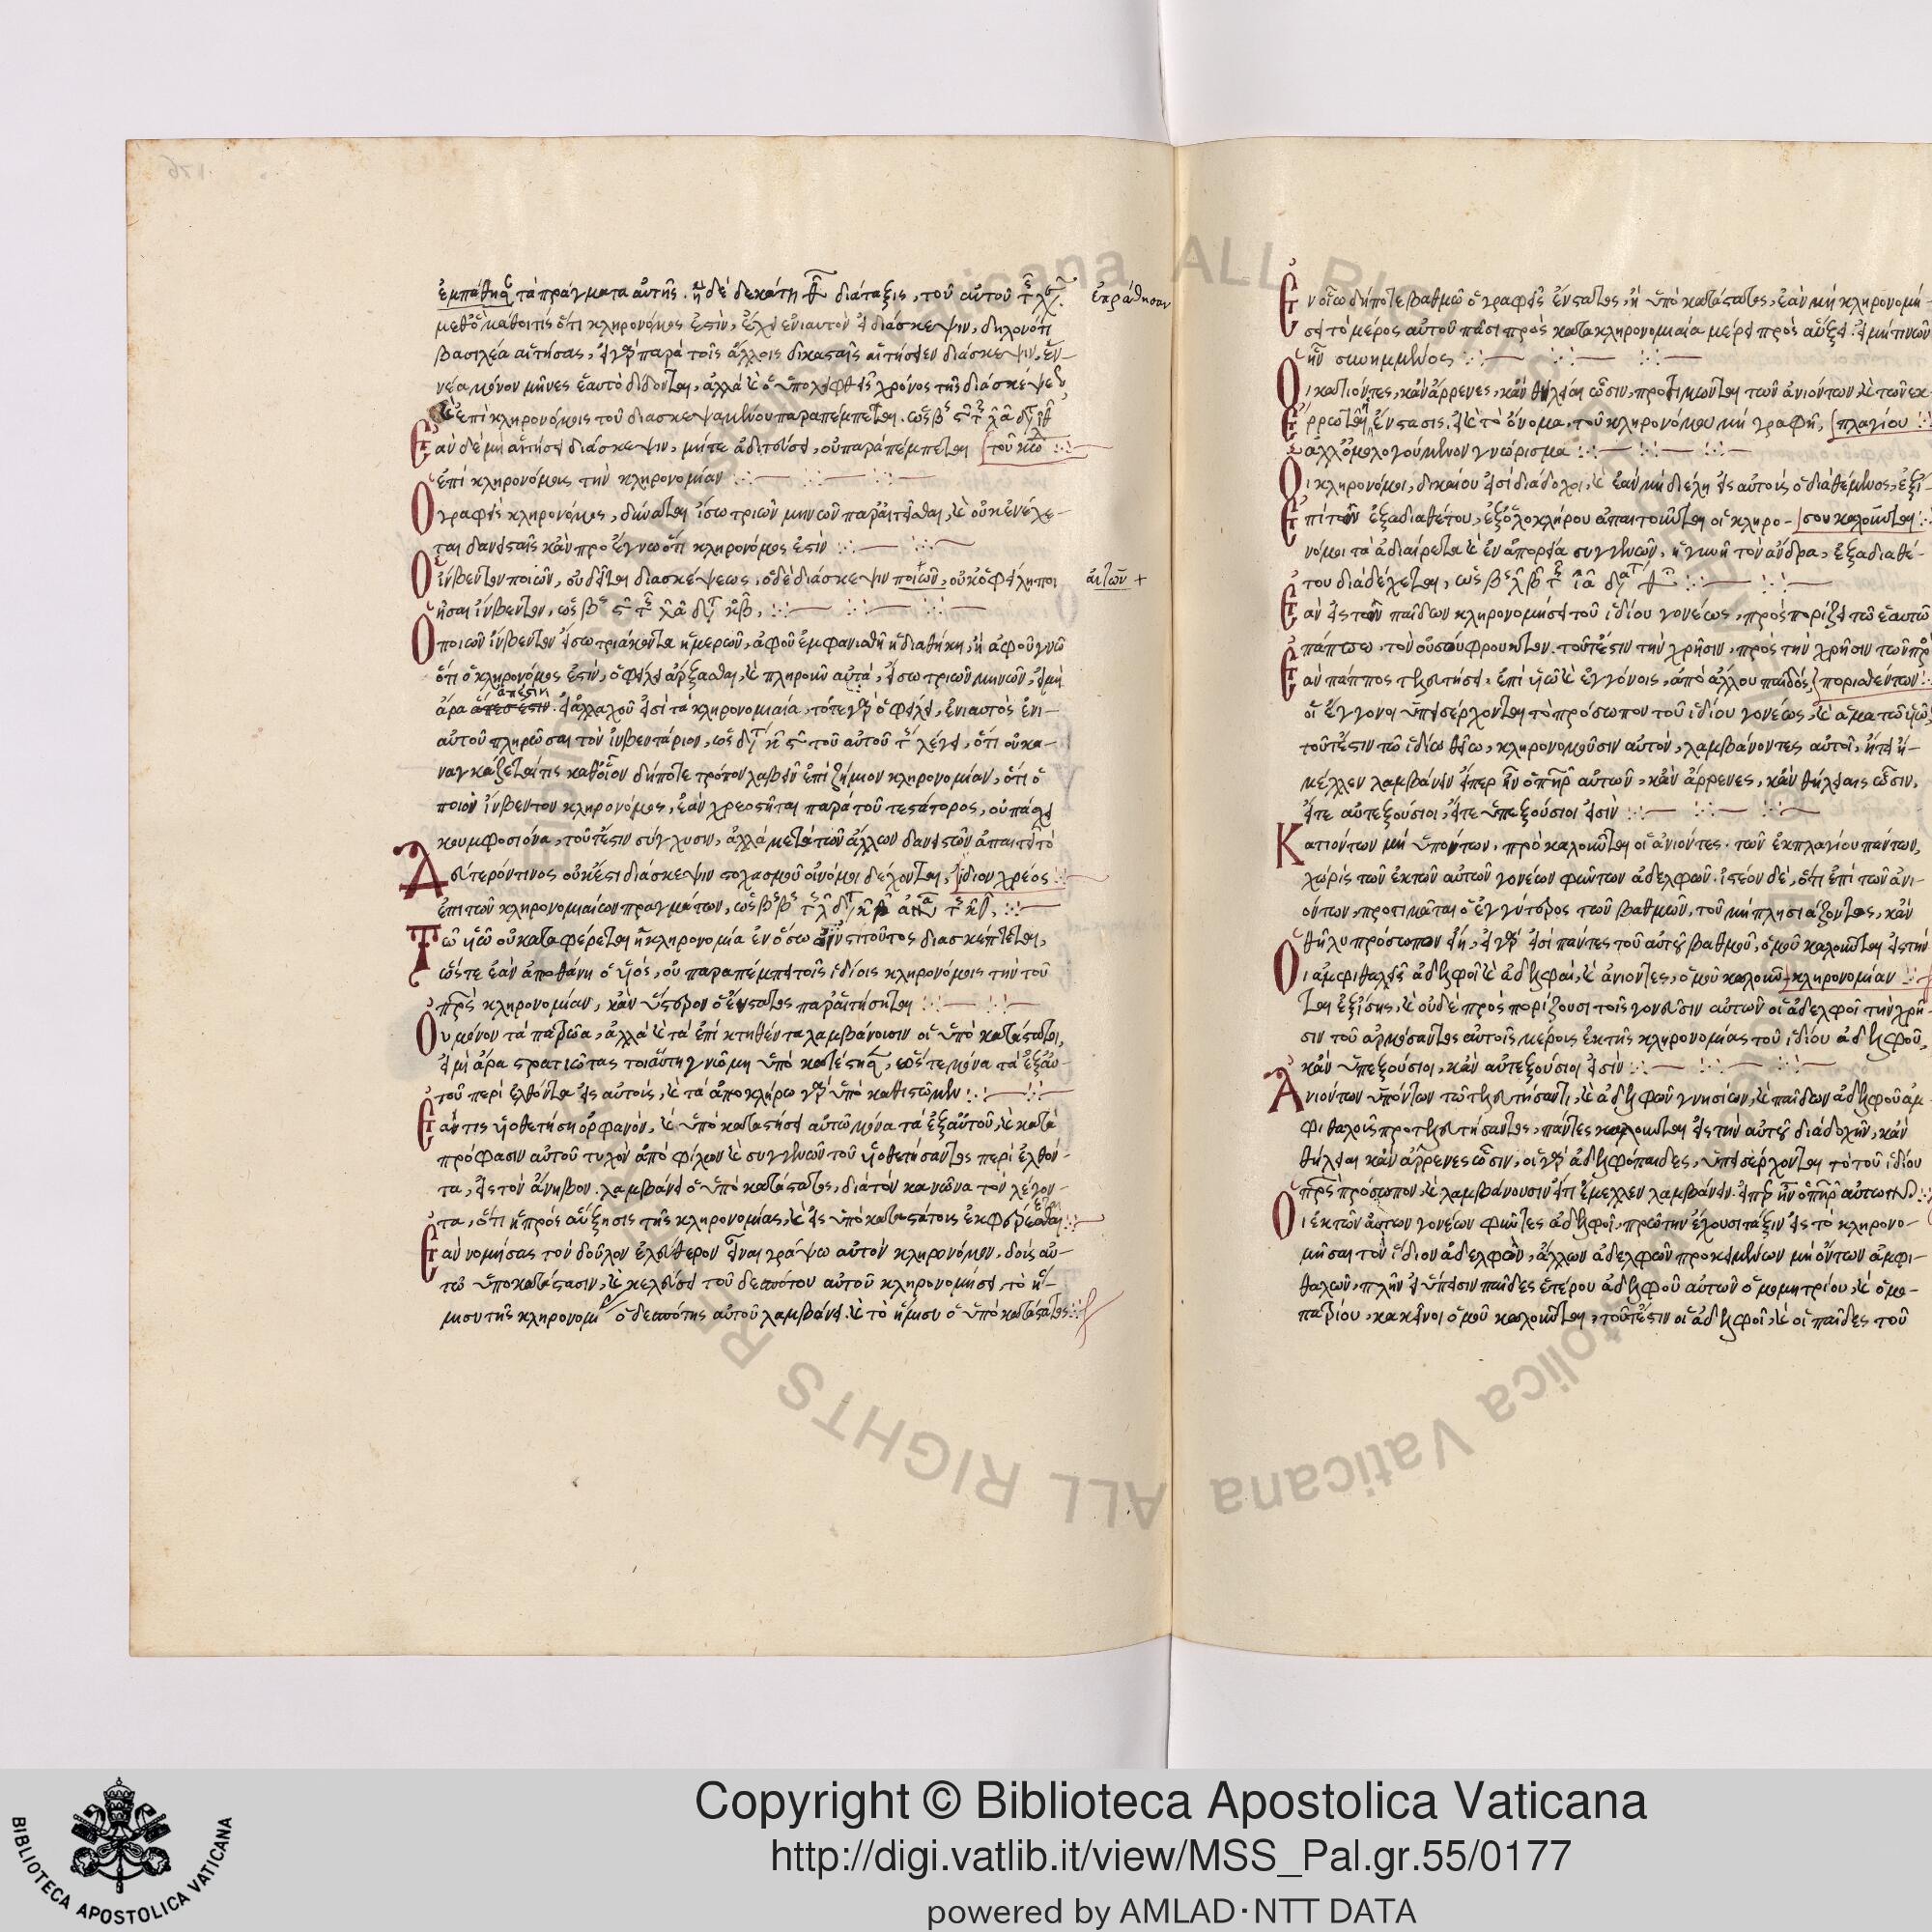 τὰ πράγματα αὐτῆς. ἡ δὲ δεκάτη διάταξις, τοῦ αὐτοῦ
ἐπράθησαν
ὅτι κληρονόμος ἐστὶν, ἔχει ἐνιαυτὸν εἰ διάσκεψιν, δηλονότι
βασιλέα αἰτήσας, εἰ γὰρ παρὰ τοῖς ἄλλοις δικασταῖς αἰτήσειεν διάσκεψιν, ἐν-
νέα μόνον μῆνες διδονται, ἀλλὰ καὶ ὁ ὑπολειφθεὶς χρόνος τῆς διασκέψεως
ἐπὶ κληρονόμοις τοῦ διασκεψαμένου παραπέμπεται.
Ἐὰν δὲ μὴ αἰτήσει διάσκεψιν, μήτε ἀδιτεύσει, οὐ παραπέμπεται
ἐπὶ κληρονόμοις τὴν κληρονομίαν
Ὁ γραφεὶς κληρονόμος, δύναται εἴσω τριῶν μηνῶν παραιτεῖσθαι, καὶ οὐκ ἐνέχε-
ται δανεισταῖς κἂν προέγνω ὅτι κληρονόμος ἐστὶν
Ὁ ἰνβεντον ποιῶν, οὐ δεῖται διασκέψεως, ὁ δὲ διάσκεψιν ποιῶν, οὐκ ὀφείλει ποι
αἰτῶν +
ῆσαι ἰνβεντον,
Ὁ ποιῶν ἰνβεντον εἴσω τριάκοντα ἡμερῶν, ἀφοῦ ἐμφανισθῆ ἡ διαθήκη, ἢ ἀφοῦ γνῶ
ὅτι ὁ κληρονόμος ἐστὶν, ὀφείλει ἄρξασθαι, καὶ πληροῦν αὐτὰ, εἴσω τριῶν μηνῶν, εἰ μὴ
ἄρα ἄπεστιν. εἰ ἀλλαχοῦ εἰσὶ τὰ κληρονομιαῖα, τότε γὰρ ὀφείλει, ἐνιαυτὸς ἐνι-
αυτοῦ πληρῶσαι τὸν ἰνβεντάριον, τοῦ αὐτοῦ λέγει, ὅτι οὐκ α-
ναγκάζεται τις καθ' οἷον δήποτε τρόπον λαβεῖν ἐπιζήμιον κληρονομίαν, ὅτι ὁ
ποιῶν ἰνβεντον κληρονόμος, ἐὰν χρεοστῆται παρὰ τοῦ τεστάτορος, οὐ πάσχει
κουμφοσιόνα, τοῦτ' ἔστιν σύγχυσιν, ἀλλὰ μετὰ τῶν ἄλλων δανειστῶν ἀπαιτεῖ τὸ
ἀδιτεύοντινος οὐκέτι διάσκεψιν στοχασμοῦ οἱ νόμοι δέχονται, ἴδιον χρέος
ἐπὶ τῶν κληρονομιαίων πραγμάτων,
Τῶ υἱῶ οὐ καταφέρεται ἡ κληρονομία ἐν ὅσω διασκέπτεται,
ὥστε ἐὰν ἀποθάνη ὁ υἱός, οὐ παραπέμπει τοῖς ἰδίοις κληρονόμοις τὴν τοῦ
πρς κληρονομίαν, κἂν ὕστερον ὁ ἔνστατος παραιτήσηται
Οὐ μόνον τὰ πατρῶα, ἀλλὰ καὶ τὰ ἐπικτηθέντα λαμβάνουσιν οἱ ὑποκατάστατοι,
εἰ μὴ ἄρα στρατιώτας τοιαύτη γνώμη ὑποκατέστησεν, ὥστε μόνα τὰ ἐξ αὐ-
τοῦ περιελθόντα εἰς αὐτοὺς, καὶ τὰ ἀποκλήρω
Ἐάν τις υἱοθετήση ὀρφανὸν, καὶ ὑποκαταστήσει αὐτῶ μόνα τὰ ἐξ αὐτοῦ, καὶ κατὰ
πρόφασιν αὐτοῦ τυχὸν ἀπὸ φίλων καὶ συγγενῶν τοῦ υἱοθετήσαντος περιελθόν-
τα, εἰς τὸν ἄνηβον. λαμβάνει ὁ ὑποκατάστατος, διὰ τὸν κανῶνα τὸν λέγον-
τα, ὅτι ἡ πρόσαύξησις τῆς κληρονομίας, καὶ εἰς ὑποκαταστάτους ἐκφέρεσθαι
Ἐὰν νομήσας τὸν δοῦλον ἐλεύθερον εἶναι γράψω αὐτὸν κληρονόμον, δοὺς αὐ-
τῶ ὑποκατάστασιν, καὶ κελεύσει τοῦ δεσπότου αὐτοῦ κληρονομήσει, τὸ ἥ-
μισυ τῆς κληρονομίας ὁ δεσπότης αὐτοῦ λαμβάνει. καὶ τὸ ἥμισυ ὁ ὑποκατάστατος
Ἐν οἵω δήποτε βαθμῶ ὁ γραφεὶς ἔνστατος, ἢ ὑποκατάστατος, ἐὰν μὴ κληρονομή-
σει τὸ μέρος αὐτοῦ πᾶσι πρὸς κατακληρονομιαία μέρει πρὸς αὔξει. εἰ μή τινι τῶν
ἦν συνημμένος
Οἱ κατιόντες, κἂν ἄρρενες, κἂν θήλειαι ὦσιν, προτιμῶνται τῶν ἀνιόντων καὶ τῶν ἐκ
Ἔρρωται ἡ ἔνστασις. εἰ καὶ τὸ ὄνομα τοῦ κληρονόμου μὴ γραφῆ, πλαγίου
ἀλλ' ὁμολογούμενον γνώρισμα
Οἱ κληρονόμοι, δικαίου εἰσὶ διάδοχοι, καὶ ἐὰν μὴ διέλη εἰς αὐτοὺς ὁ διαθέμενος, ἐξί-
Ἐπὶ τῶν ἐξ ἀδιαθέτου, ἐξ ὁλοκλήρου ἀπαιτοῦνται οἱ κληρο- σου καλοῦνται
νόμοι τὰ ἀδιαίρετα καὶ ἐν ἀπορία συγγενῶν, ἡ γυνὴ τὸν ἄνδρα, ἐξ ἀδιαθέ-
του διαδέχεται,
Ἐὰν εἷς τῶν παίδων κληρονομήσει τοῦ ἰδίου γονέως, προσπορίζει τῶ ἑαυτῶ
πάππω τὸν οὐσούφρουκτον. τοῦτ' ἔστιν τὴν χρῆσιν, πρὸς τὴν χρῆσιν τῶν
Ἐὰν πάππος τελευτήσει, ἐπὶ υἱῶ καὶ ἐγγόνοις, ἀπὸ ἄλλου παιδός, πορισθέντων
οἱ ἔγγονοι ὑπεισέρχονται τὸ πρόσωπον τοῦ ἰδίου γονέως, καὶ ἅμα τῶ υἱῶ,
τοῦτ' ἔστιν τῶ ἰδίω θείω, κληρονομοῦσιν αὐτὸν, λαμβάνοντες αὐτοὶ,
μέλλεν λαμβάνειν εἴπερ ἦν ὁ πηρ αὐτῶν, κἂν ἄρρενες, κἂν θήλειαις ὦσιν,
εἴτε αὐτεξούσιοι, εἴτε ὑπεξούσιοι εἰσὶν
Κατιόντων μὴ ὑπόντων, προκαλοῦνται οἱ ἀνιόντες τῶν ἐκπλαγίου πάντων,
χωρὶς τῶν ἐκ τῶν αὐτῶν γονέων φύντων ἀδελφῶν. ἰστέον δὲ, ὅτι ἐπὶ τῶν ἀνι-
όντων, προτιμᾶται ὁ ἐγγύτερος τῶν βαθμῶν, τοῦ μὴ πλησιάζοντος, κἂν
θῆλυ πρόσωπον εἴη, εἰ γὰρ εἰσὶ πάντες τοῦ αὐτοῦ βαθμοῦ, ὁμοῦ καλοῦνται εἰς τὴν
Οἱ ἀμφιθαλεῖς ἀδελφοὶ καὶ ἀδελφαὶ, καὶ ἀνιόντες, ὁμοῦ καλοῦν- κληρονομίαν
ται ἐξ ἴσης, καὶ οὐδὲ προσπορίζουσι τοῖς γονεῦσιν αὐτῶν οἱ ἀδελφοὶ τὴν χρῆ-
σιν τοῦ ἁρμόσαντος αὐτοῖς μέρους ἐκ τῆς κληρονομίας τοῦ ἰδίου ἀδελφοῦ,
κἂν ὑπεξούσιοι, κἂν αὐτεξούσιοι εἰσὶν
Ἀνιόντων ὑπόντων τῶ τελευτήσαντι, καὶ ἀδελφῶν γνησίων, καὶ παίδων ἀδελφοῦ ἀμ-
φιθαλοῦς προτελευτήσαντος, πάντες καλοῦνται εἰς τὴν αὐτοῦ διαδοχὴν, κἂν
θήλειαι κἂν ἄρρενες ὦσιν, οἱ γὰρ ἀδελφόπαιδες, ὑπεισέρχονται τὸ τοῦ ἰδίου
πρς πρόσωπον, καὶ λαμβάνουσιν εἴτι ἔμελλεν λαμβάνειν εἴπερ ἦν ὁ πηρ αὐτῶν
Οἱ ἐκ τῶν αὐτῶν γονέων φύντες ἀδελφοὶ, πρώτην ἔχουσι τάξιν εἰς τὸ κληρονο-
μῆσαι τὸν ἴδιον ἀδελφὸν, ἄλλων ἀδελφῶν προκειμένων μὴ ὄντων ἀμφι-
θαλῶν, πλὴν εἰ ὕπεισιν παῖδες ἑτέρου ἀδελφοῦ αὐτῶν ὁμομητρίου, καὶ ὁμο-
πατρίου, κακεῖνοι ὁμοῦ καλοῦνται, τοῦτ' ἔστιν οἱ ἀδελφοὶ, καὶ οἱ παῖδες τοῦ
Copyright © Biblioteca Apostolica Vaticana
http://digi.vatlib.it/view/MSS_Pal.gr.55/0177
powered by AMLAD·NTT DATA
BIBLIOTECA APOSTOLICA VATICANA